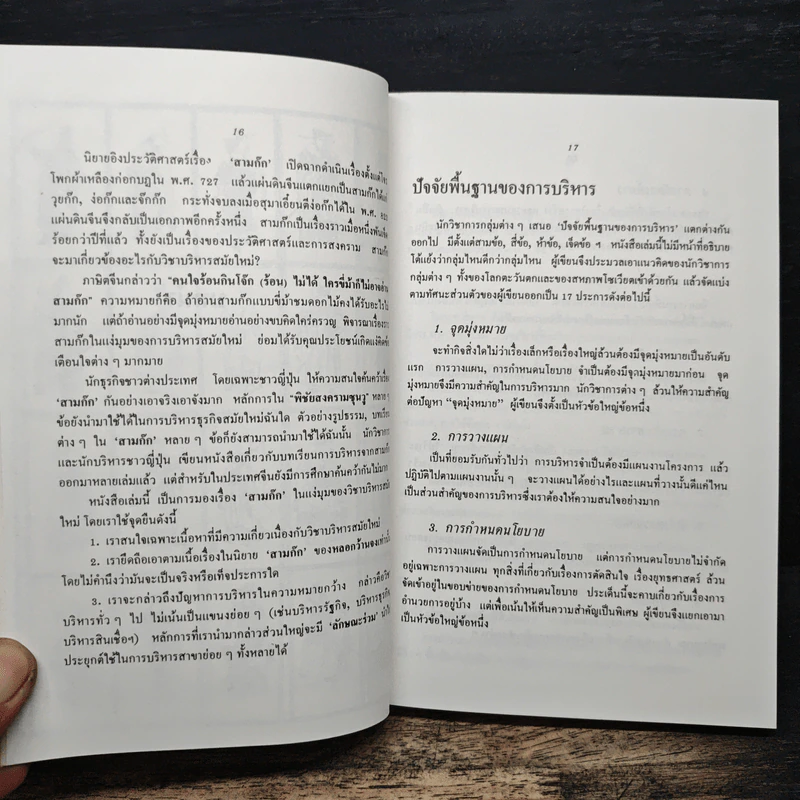 16
นิยายอิงประวัติศาสตร์เรื่อง 'สามก๊ก' เปิดฉากดำเนินเรื่องตั้งแต่โจร
โพกผ้าเหลืองก่อกบฎใน พ.ศ. 727 แล้วแผ่นดินจีนแตกแยกเป็นสามก๊กได้แก่
วุยก๊ก, ง่อก๊กและจ๊กก๊ก กระทั่งจบลงเมื่อสุมาเอี๋ยนตีง่อก๊กได้ใน พ.ศ.
แผ่นดินจีนจึงกลับเป็นเอกภาพอีกครั้งหนึ่ง สามก๊กเป็นเรื่องราวเมื่อหนึ่งพัน
ร้อยกว่าปีที่แล้ว ทั้งยังเป็นเรื่องของประวัติศาสตร์และการสงคราม สามก๊ก
จะมาเกี่ยวข้องอะไรกับวิชาบริหารสมัยใหม่?
ภาษิตจีนกล่าวว่า "คนใจร้อนกินโจ๊ก (ร้อน) ไม่ได้ ใครขี่ม้าก็ไม่อาจอ่าน
สามก๊ก" ความหมายก็คือ ถ้าอ่านสามก๊กแบบขี่ม้าชมดอกไม้คงได้รับอะไรไม่
มากนัก แต่ถ้าอ่านอย่างมีจุดมุ่งหมายอ่านอย่างขบคิดใคร่ครวญ พิจารณาเรื่องราว
สามก๊กในแง่มุมของการบริหารสมัยใหม่ ย่อมได้คุณประโยชน์เกิดแง่คิดข้อ
เตือนใจต่าง ๆ มากมาย
นักธุรกิจชาวต่างประเทศ โดยเฉพาะชาวญี่ปุ่น ให้ความสนใจค้นคว้าเรื่อง
'สามก๊ก' กันอย่างเอาจริงเอาจังมาก หลักการใน "พิชัยสงครามซุนวู" หลาย ๆ
ข้อยังนำมาใช้ได้ในการบริหารธุรกิจสมัยใหม่ฉันใด ตัวอย่างรูปธรรม, บทเรียน
ต่าง ๆ ใน 'สามก๊ก' หลาย ๆ ข้อก็ยังสามารถนำมาใช้ได้ฉันนั้น นักวิชาการ
และนักบริหารชาวญี่ปุ่น เขียนหนังสือเกี่ยวกับบทเรียนการบริหารจากสามก๊ก
ออกมาหลายเล่มแล้ว แต่สำหรับในประเทศจีนยังมีการศึกษาค้นคว้ากันไม่มาก
หนังสือเล่มนี้ เป็นการมองเรื่อง 'สามก๊ก' ในแง่มุมของวิชาบริหารสมัย
ใหม่ โดยเราใช้จุดยืนดังนี้
1. เราสนใจเฉพาะเนื้อหาที่มีความเกี่ยวเนื่องกับวิชาบริหารสมัยใหม่
2. เรายึดถือเอาตามเนื้อเรื่องในนิยาย 'สามก๊ก' ของหลอกว้านจงเท่านั้น
โดยไม่คำนึงว่ามันจะเป็นจริงหรือเท็จประการใด
3. เราจะกล่าวถึงปัญหาการบริหารในความหมายกว้าง กล่าวคือวิชา
บริหารทั่ว ๆ ไป ไม่เน้นเป็นแขนงย่อย ๆ (เช่นบริหารรัฐกิจ, บริหารธุรกิจ
บริหารสินเชื่อฯ) หลักการที่เรานำมากล่าวส่วนใหญ่จะมี 'ลักษณะร่วม' นำไป
ประยุกต์ใช้ในการบริหารสาขาย่อย ๆ ทั้งหลายได้
17
ปัจจัยพื้นฐานของการบริหาร
นักวิชาการกลุ่มต่าง ๆ เสนอ 'ปัจจัยพื้นฐานของการบริหาร' แตกต่างกัน
ออกไป มีตั้งแต่สามข้อ, สี่ข้อ, ห้าข้อ, เจ็ดข้อ ฯ หนังสือเล่มนี้ไม่มีหน้าที่อธิบาย
โต้แย้งว่ากลุ่มไหนดีกว่ากลุ่มไหน ผู้เขียนจึงประมวลเอาแนวคิดของนักวิชาการ
กลุ่มต่าง ๆ ทั้งของโลกตะวันตกและของสหภาพโซเวียตเข้าด้วยกัน แล้วจัดแบ่ง
ตามทัศนะส่วนตัวของผู้เขียนออกเป็น 17 ประการดังต่อไปนี้
1. จุดมุ่งหมาย
จะทำกิจสิ่งใดไม่ว่าเรื่องเล็กหรือเรื่องใหญ่ล้วนต้องมีจุดมุ่งหมายเป็นอันดับ
แรก การวางแผน, การกำหนดนโยบาย จำเป็นต้องมีจุดมุ่งหมายมาก่อน จุด
มุ่งหมายจึงมีความสำคัญในการบริหารมาก นักวิชาการต่าง ๆ ล้วนให้ความสำคัญ
ต่อปัญหา "จุดมุ่งหมาย" ผู้เขียนจึงตั้งเป็นหัวข้อใหญ่ข้อหนึ่ง
2. การวางแผน
เป็นที่ยอมรับกันทั่วไปว่า การบริหารจำเป็นต้องมีแผนงานโครงการ แล้ว
ปฏิบัติไปตามแผนงานนั้น ๆ จะวางแผนได้อย่างไรและแผนที่วางนั้นดีแค่ไหน
เป็นส่วนสำคัญของการบริหารซึ่งเราต้องให้ความสนใจอย่างมาก
3. การกำหนดนโยบาย
การวางแผนจัดเป็นการกำหนดนโยบาย แต่การกำหนดนโยบายไม่จำกัด
อยู่เฉพาะการวางแผน ทุกสิ่งที่เกี่ยวกับเรื่องการตัดสินใจ เรื่องยุทธศาสตร์ ล้วน
จัดเข้าอยู่ในขอบข่ายของการกำหนดนโยบาย ประเด็นนี้จะคาบเกี่ยวกับเรื่องการ
อำนวยการอยู่บ้าง แต่เพื่อเน้นให้เห็นความสำคัญเป็นพิเศษ ผู้เขียนจึงแยกเอามา
เป็นหัวข้อใหญ่ข้อหนึ่ง